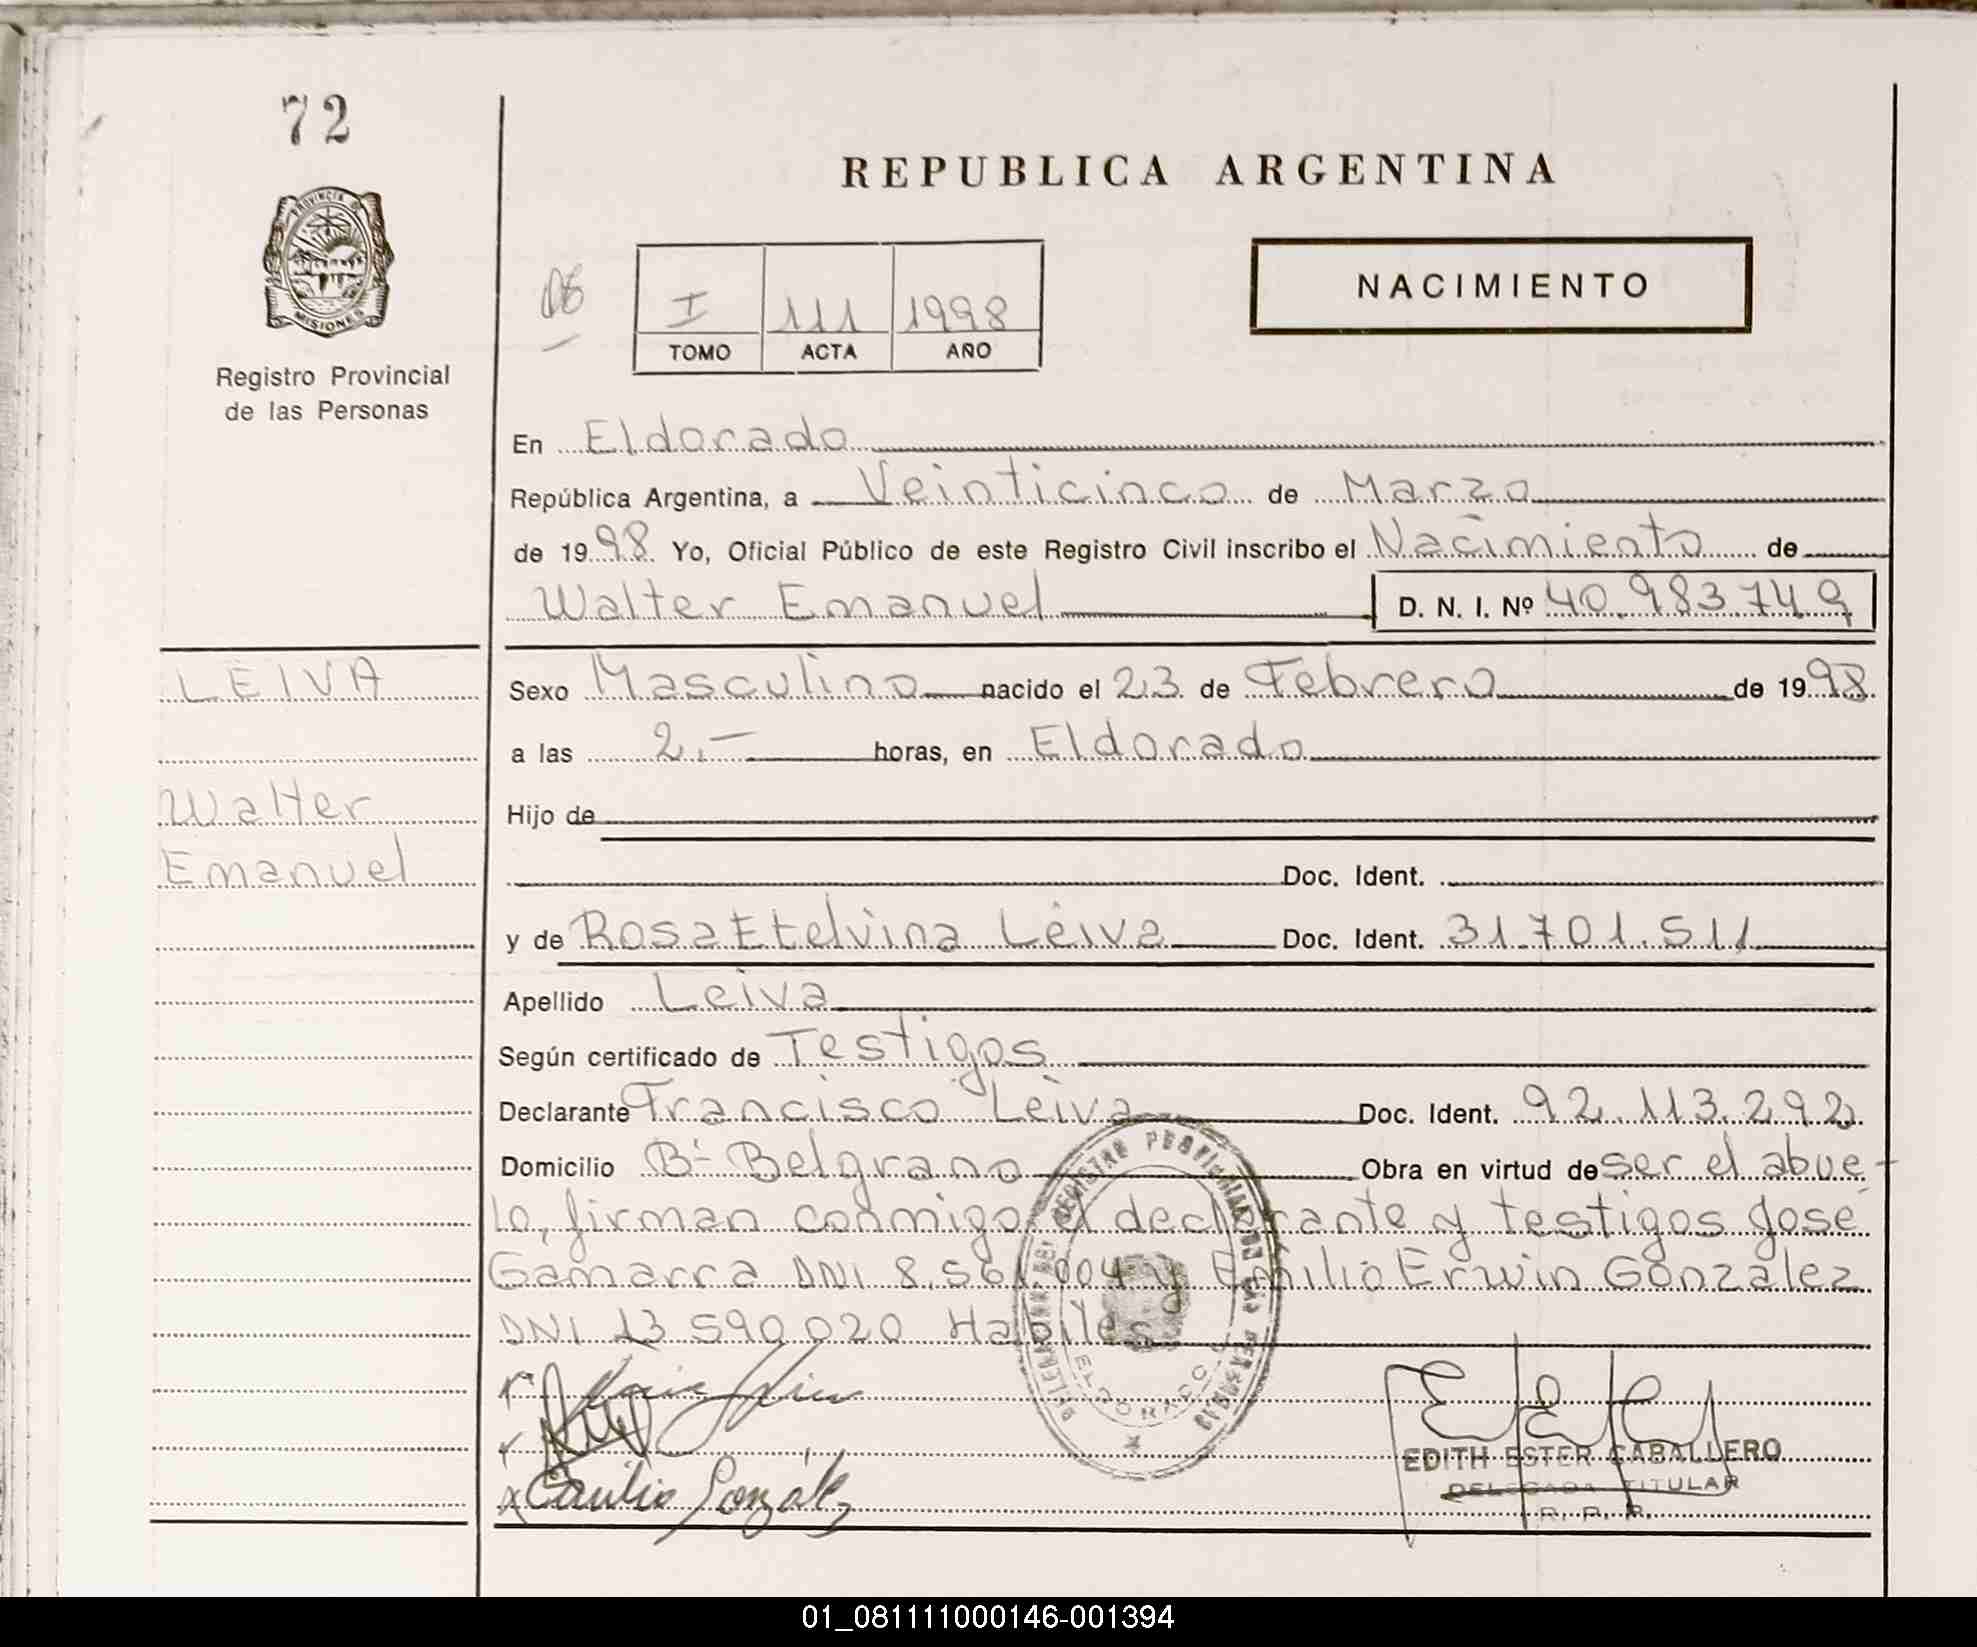 72
REPUBLICA ARGENTINA
PROVINCIA DE
MISIONES
Registro Provincial
de las Personas
06
I 111 1998
TOMO ACTA AÑO
NACIMIENTO
En Eldorado
República Argentina, a Veinticinco de Marzo
de 1998 Yo, Oficial Público de este Registro Civil inscribo el Nacimiento de
Walter Emanuel D. N. I. Nº 40.983.749
LEIVA
Walter
Emanuel
Sexo Masculino nacido el 23 de Febrero de 1998.
a las 2.- horas, en Eldorado
Hijo de
Doc. Ident.
y de Rosa Etelvina Leiva Doc. Ident. 31.701.511
Apellido Leiva
Según certificado de Testigos
Declarante Francisco Leiva Doc. Ident. 92.113.292
Domicilio Bº Belgrano Obra en virtud de ser el abue-
lo, firman conmigo el declarante y testigos José
Gamarra DNI 8.561.004 y Emilio Erwin González
DNI 13.590.020 Habiles
REGISTRO PROVINCIAL DE LAS PERSONAS
ELDORADO
Emilio Gonzalez
EDITH ESTER CABALLERO
DELEGADA TITULAR
R. P. P.
01_081111000146-001394